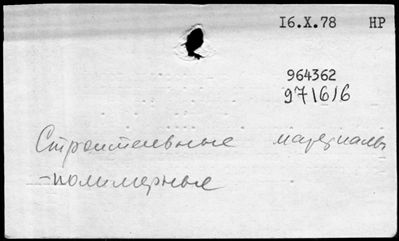 16.X.78 НР
964362
971616
Строительные материалы
-полимерные